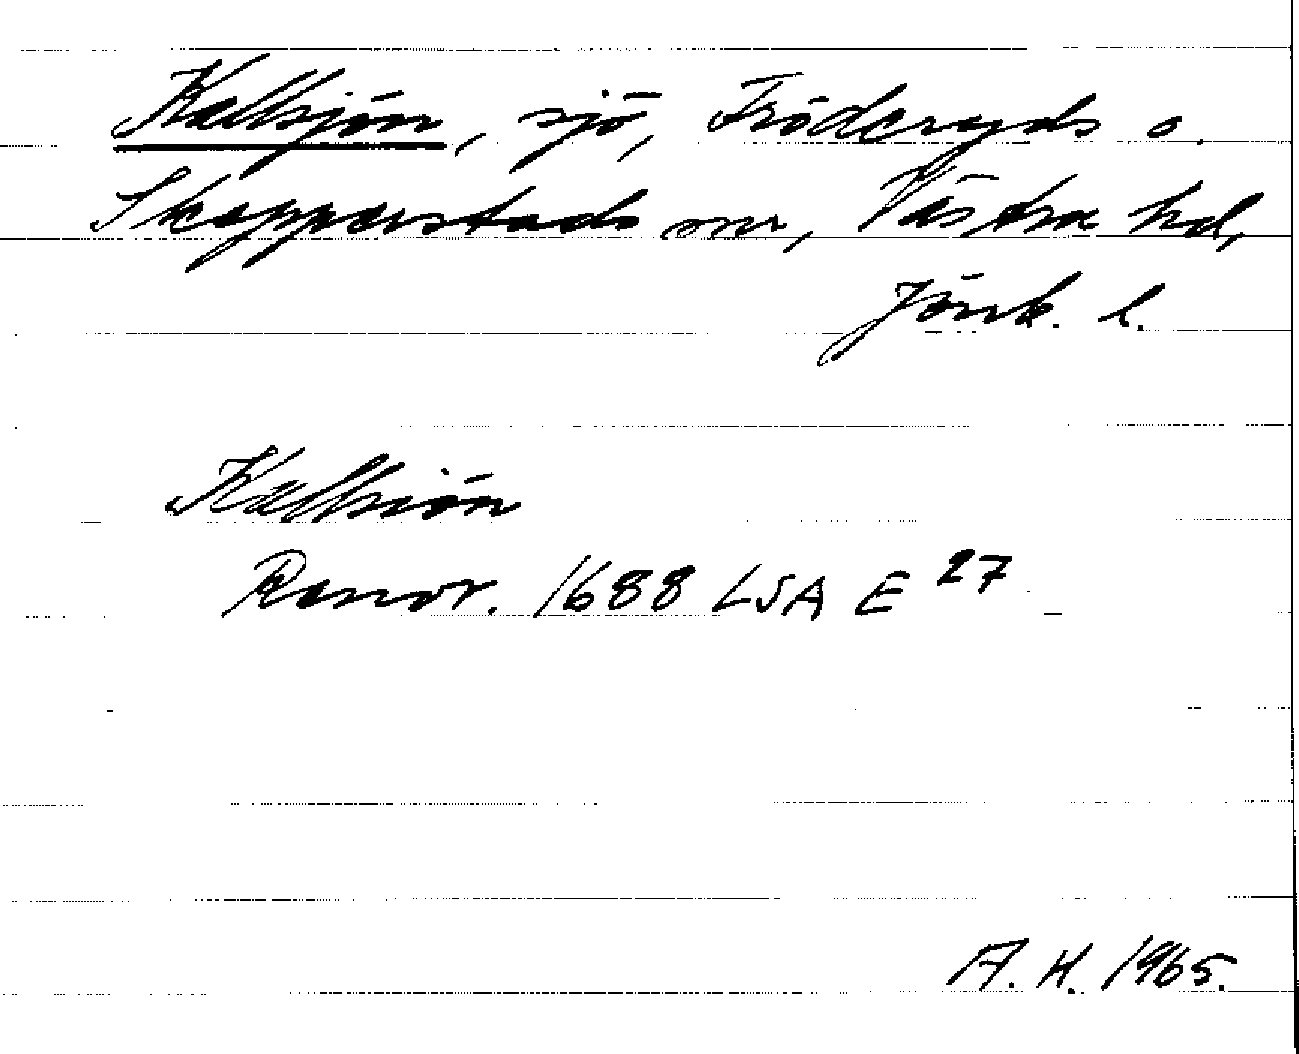 Kallsjön, sjö, Fröderyds o.
Skepperstads snr, Västra hd,
Jönk. l.
Kallsiön
Ransr. 1688 LSA E 27
A. H. 1965.